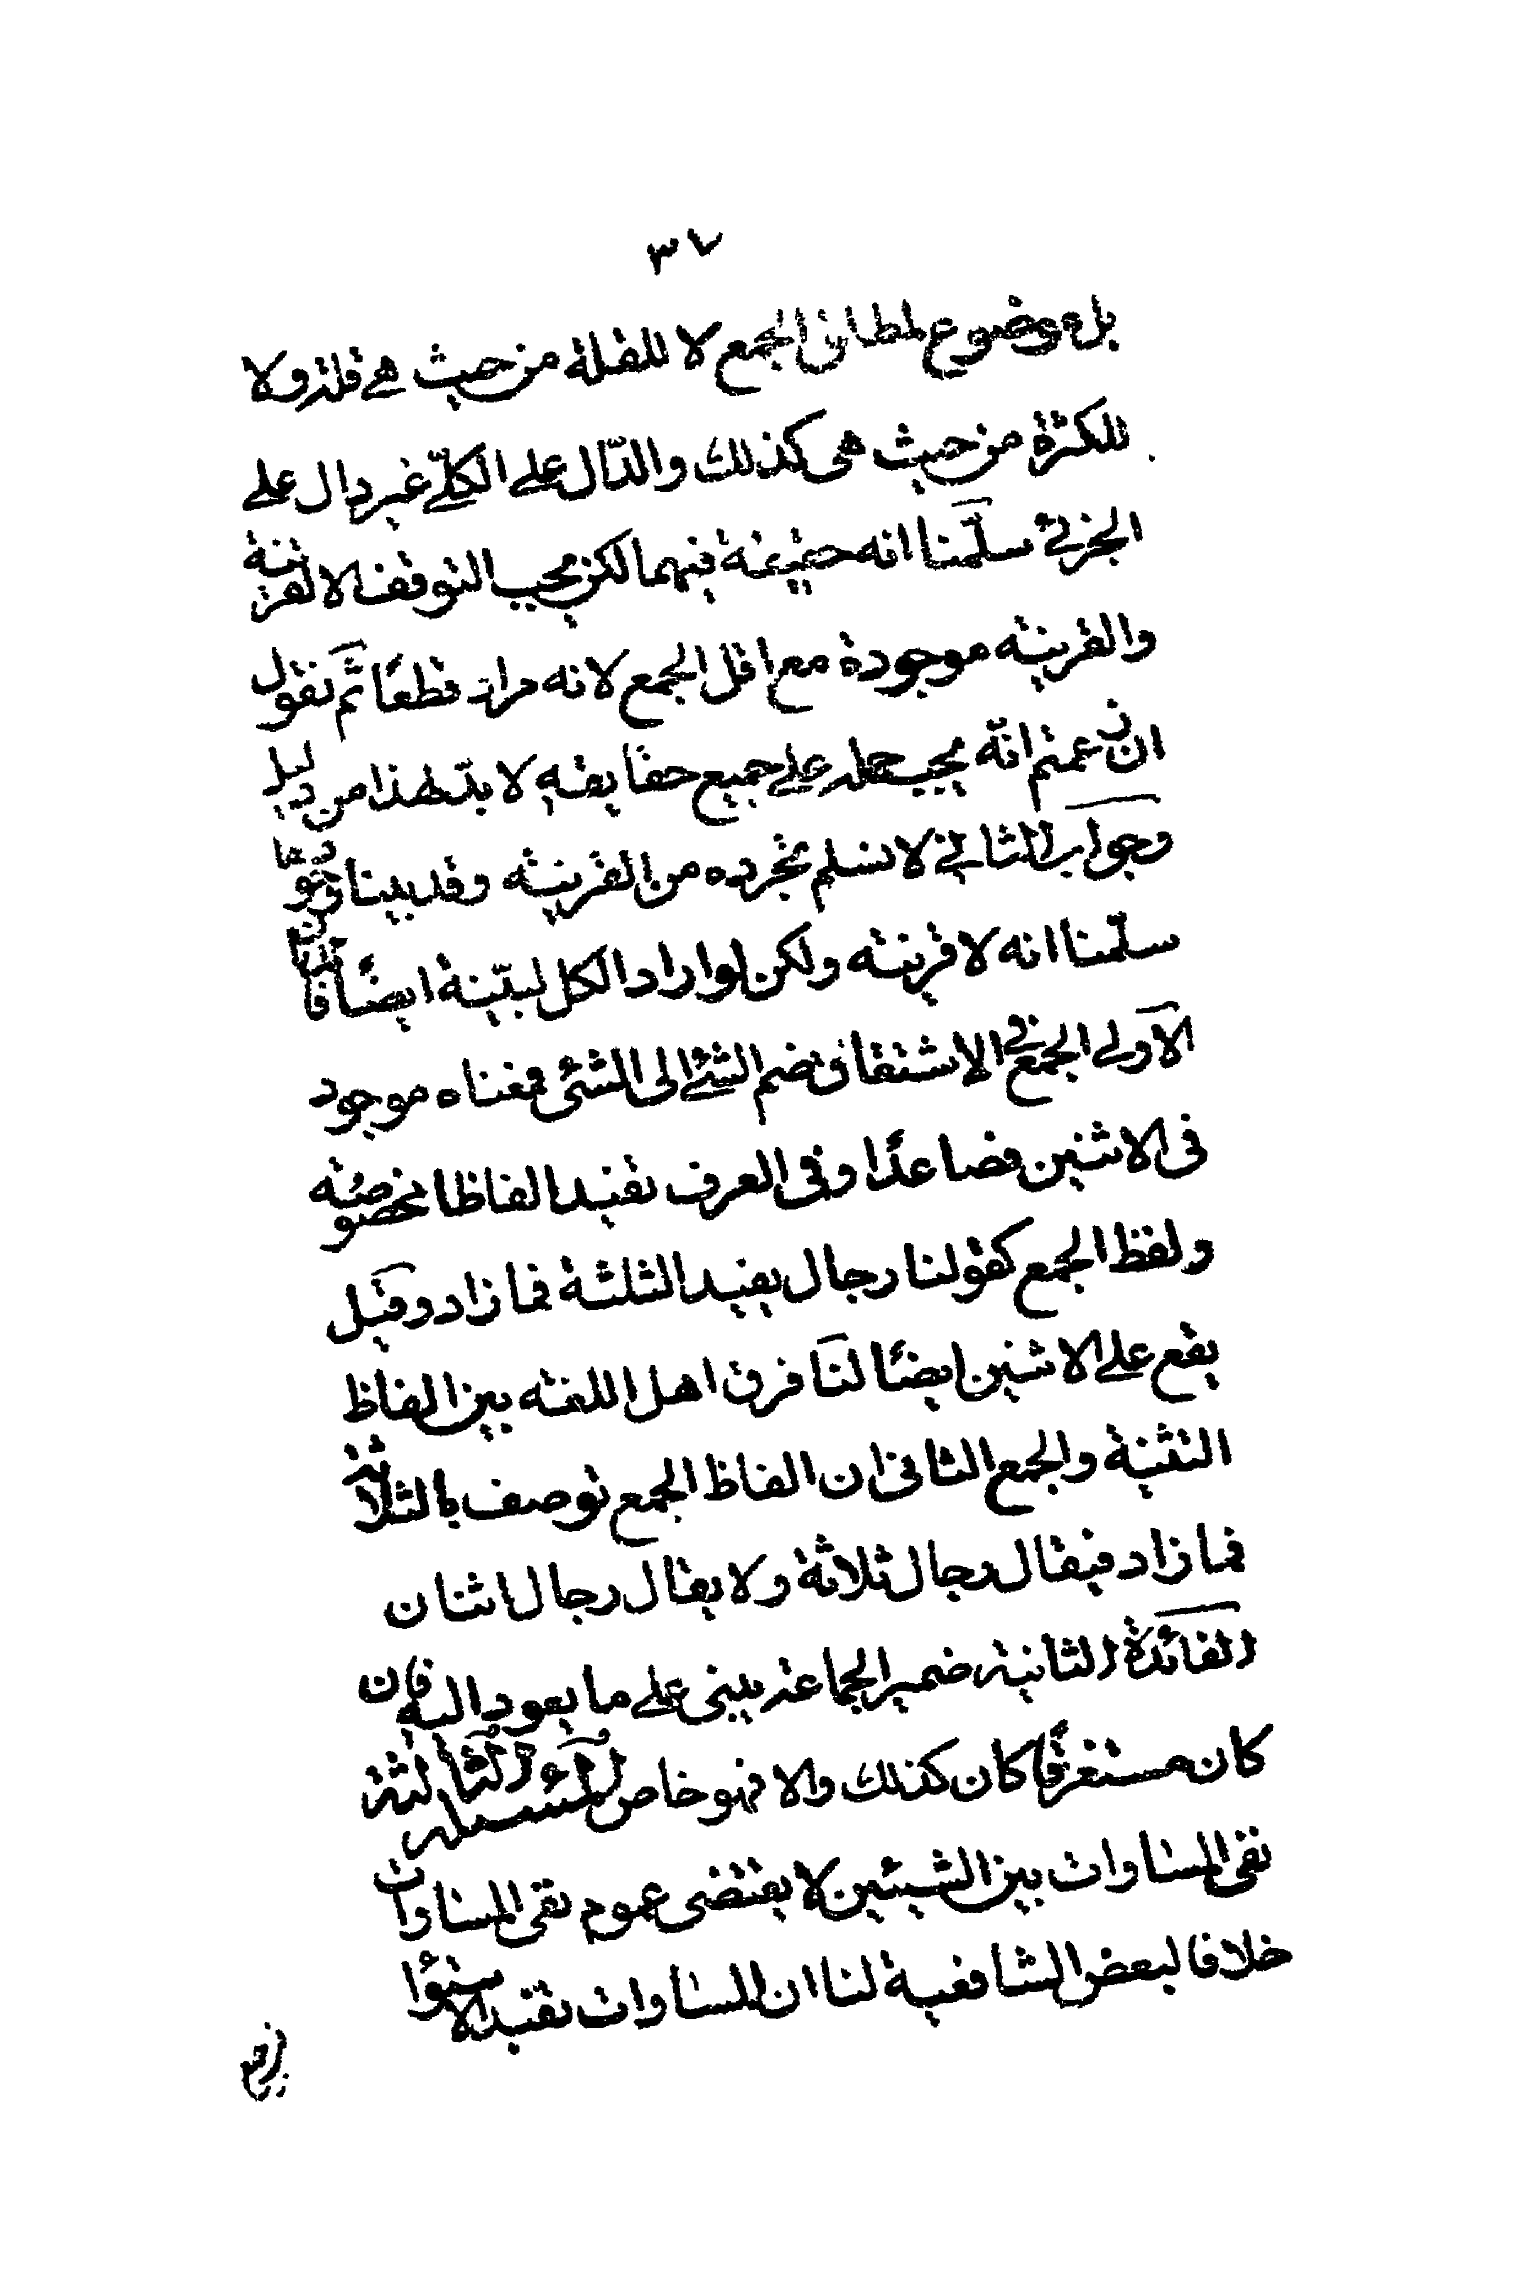 ٣٧
بل موضوع لمطلق الجمع لا للقلة من حيث هي قلة ولا
للكثرة من حيث هى كذلك والدّال على الكلّي غير دال على
الجزئي سلّمنا انه حقيقة فيهما لكن يجب التوقف الا لقرينة
والقرينه موجودة مع اقل الجمع لانه مراد قطعًا ثم نقول
ان زعمتم انّه يجب حمله على جميع حقايقه لا بدّ لهذا من دليل
وجواب الثاني لا نسلم تجرده من القرينه وقد بيناه
سلّمنا انه لا قرينه ولكن لو اراد الكل لبيّنة ايضًا
الاولى الجمع في الاشتقاق ضم الشئ الى الشئ فمعناه موجود
فى الاثنين فصاعدًا وفى العرف يفيد الفاظا مخصوصة
ولفظ الجمع كقولنا رجال يفيد الثلثة فما زاد وقيل
يقع على الاثنين ايضًا لنا فرق اهل اللغه بين الفاظ
التثنية والجمع الثانى ان الفاظ الجمع توصف بالثلاثة
فما زاد فيقال رجال ثلاثة ولا يقال رجال اثنان
الفائدة الثانية ضمير الجماعة يبنى على ما يعود اليه فان
كان مستغرقًا كان كذلك والا فهو خاص المسئلة الثالثة
نفى المساوات بين الشيئين لا يقتضى عموم نفى المساوات
خلافا لبعض الشافعية لنا ان المساوات تفيد الاستوا